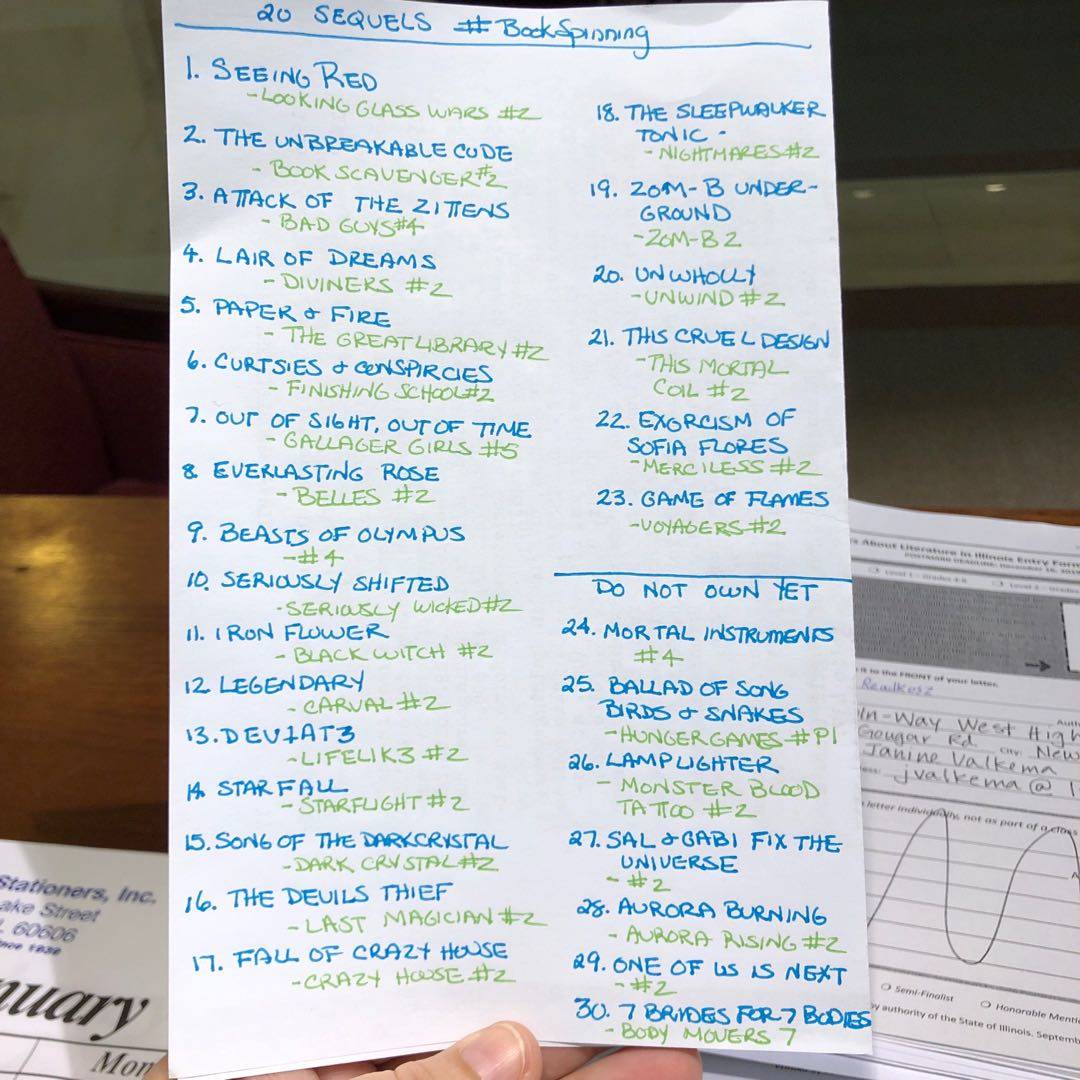 20 SEQUELS #BookSpinning
1. SEEING RED
-LOOKING GLASS WARS #2
2. THE UNBREAKABLE CODE
- BOOK SCAVENGER #2
3. ATTACK OF THE ZITTENS
- BAD GUYS #4
4. LAIR OF DREAMS
- DIVINERS #2
5. PAPER & FIRE
- THE GREAT LIBRARY #2
6. CURTSIES & CONSPIRCIES
- FINISHING SCHOOL #2
7. OUT OF SIGHT, OUT OF TIME
- GALLAGER GIRLS #5
8. EVERLASTING ROSE
- BELLES #2
9. BEASTS OF OLYMPUS
- #4
10. SERIOUSLY SHIFTED
- SERIOUSLY WICKED #2
11. IRON FLOWER
- BLACK WITCH #2
12. LEGENDARY
- CARVAL #2
13. DEV1AT3
- LIFELIK3 #2
14. STARFALL
- STARFLIGHT #2
15. SONG OF THE DARKCRYSTAL
- DARK CRYSTAL #2
16. THE DEVILS THIEF
- LAST MAGICIAN #2
17. FALL OF CRAZY HOUSE
- CRAZY HOUSE #2
18. THE SLEEPWALKER
TONIC -
- NIGHTMARES #2
19. ZOM-B UNDER-
GROUND
- ZOM-B 2
20. UNWHOLLY
- UNWIND #2
21. THIS CRUEL DESIGN
- THIS MORTAL
COIL #2
22. EXORCISM OF
SOFIA FLORES
- MERCILESS #2
23. GAME OF FLAMES
- VOYAGERS #2
DO NOT OWN YET
24. MORTAL INSTRUMENTS
#4
25. BALLAD OF SONG
BIRDS & SNAKES
- HUNGER GAMES #P1
26. LAMPLIGHTER
- MONSTER BLOOD
TATTOO #2
27. SAL & GABI FIX THE
UNIVERSE
- #2
28. AURORA BURNING
- AURORA RISING #2
29. ONE OF US IS NEXT
- #2
30. 7 BRIDES FOR 7 BODIES
- BODY MOVERS 7
Stationers, Inc.
ake Street
60606
nuary
Mon
s About Literature in Illinois Entry Form
it to the FRONT of your letter.
Readkosz
ln-Way West High
Gougar Rd City: New
Janine Valkema
jvalkema @ l
letter individually, not as part of a class
Semi-Finalist Honorable Menti
y authority of the State of Illinois, Septemb